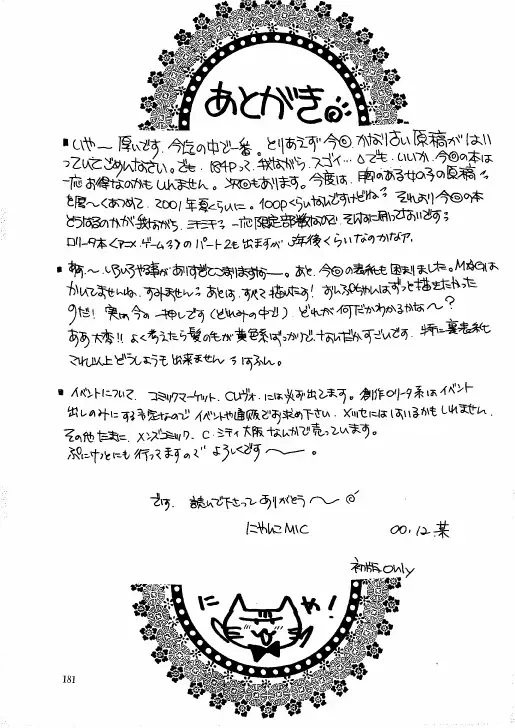 あとがき
■いや〜 厚いです。今迄の中で一番。とりあえず今回、かなり古い原稿がはい
っていてごめんなさい。でも、184Pって、我ながら、スゴイ…。でも、いいか、今回の本は
一応お得なのかもしれません。次回もあります。今度は、胸のある女の子の原稿を
と〜くあつめて、2001年夏くらいに。100pくらいなんですけどね。それより今回の本
どうなるのかが我ながら、ミチミチ。一応限定部数なので、そんなに刷ってないです。
ロリータ本〈アニメ・ゲーム〉のパート2も出ますが、年後くらいなのかなァ。
■あぁ〜 いろいろ事がありすぎてこまりますね〜。あと、今回の表紙も困りました。
かいてませんね、すみません。あとは、すべて描いたぞ! おんぷちゃんはずっと描きたかった
のだ! 実は今の一押しです(どれみの中で) どれが何だかわかるかな〜?
ああ大変!! よく考えたら髪の毛が黄色系ばっかりで、なんだかすごいです。特に裏表紙
これ以上どうしようも出来ません。
■イベントについて、コミックマーケット、Cレヴォ、には必ず出てます。創作ロリータ系はイベント
出しのみにする予定なので イベントや通販でお求め下さい。メッセにははいるかもしれません。
その他 たまに、メンズコミック、C.シティ大阪なんかで売っています。
ぷにけっとにも行ってますので よろしくです〜。
では、読んで下さって ありがとう〜
にゃんこMIC 00.12.某
初版only
にゃ!
181